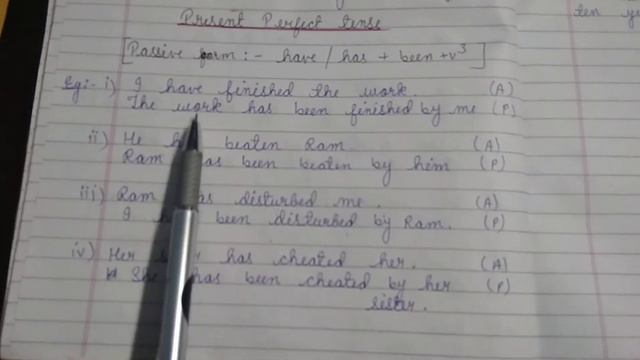 Present Perfect tense
[Passive form :- have / has + been + v³]
Eg:- i) I have finished the work. (A)
The work has been finished by me (P)
ii) He beaten Ram. (A)
Ram has been beaten by him (P)
iii) Ram has disturbed me. (A)
I been disturbed by Ram. (P)
iv) Her has cheated her. (A)
She has been cheated by her (P)
sister.
ten